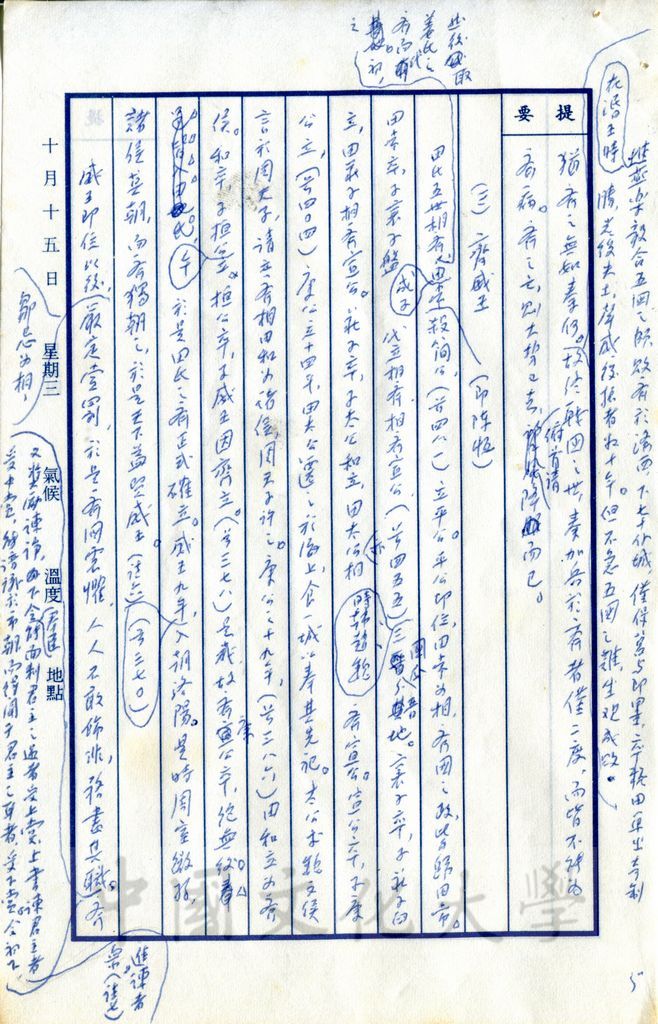 雖燕樂毅合五國之師敗齊於濟西,下七十餘城,僅保莒與即墨,卒賴田單出奇制
勝,先後失土,聲威復振者數十年。但不急五國之難,坐觀成敗。
在湣王時
提要
猶齊之無如秦何。故終戰國之世,秦加兵於齊者僅二度,而皆不得為
齊病。齊之亡,則大勢已去,俯首請降而已。
(三)齊威王
(即陳恆)
田氏五世相齊,田常殺簡公(前四八一)立平公。平公即位,田常為相,齊國之政皆歸田常。
然後取姜氏之齊而有之
田常卒,子襄子盤代立相齊,相齊宣公(前四五五)三晉分其地。襄子卒,子莊子白
成子
立,田莊子相齊宣公。莊子卒,子太公和立,田太公相齊宣公。宣公卒,子康
時韓趙魏
公立,(前四〇四)康公立十四年,田太公遷之於海上,食一城以奉其先祀。太公求魏文侯
言於周天子,請立齊相田和為諸侯,周天子許之。康公之十九年,(前三八六)田和立為齊
侯。和卒,子桓公立。桓公卒,子威王因齊立。(前三七八)是歲,故齊康公卒,絕無後,
於是田氏之齊正式確立。威王九年,入朝洛陽。是時周室微弱,
諸侯莫朝,而齊獨朝之,於是天下益賢威王(註六)
(前三七〇)
威王即位以後,嚴定賞罰,於是齊國震懼,人人不敢飾非,務盡其職。齊
十月十五日 星期三 氣候 溫度 地點
鄒忌為相,
又獎勵諫諍,下令群臣面刺君主之過者受上賞,上書諫君主者
受中賞,謗議於市朝而得聞于君主之耳者,受下賞。令初下,
進諫者
(註七)
中國文化大學
5